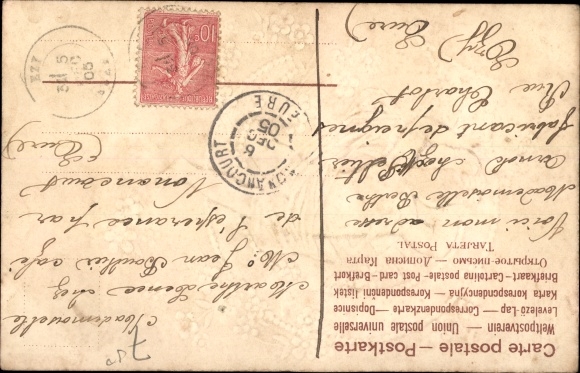 Carte postale — Postkarte
Weltpostverein — Union postale universelle
Levelező-Lap — Correspondenzkarte — Dopisnice
Karta korespondencyjna — Korespondenční lístek
Briefkaart — Cartolina postale — Post card — Brevkort
Открытое письмо — Дописна Карта
TARJETA POSTAL
Voici mon adresse
Mademoiselle Berthe
chez
fabricant de peignes
Rue Charlot
Ezy
(Eure)
Mademoiselle
Marthe chez
Mr Jean café
de l'esperance par
Nonancourt
(Eure)
NONANCOURT
6
DEC
05
EURE
EZY
5
05
10
7